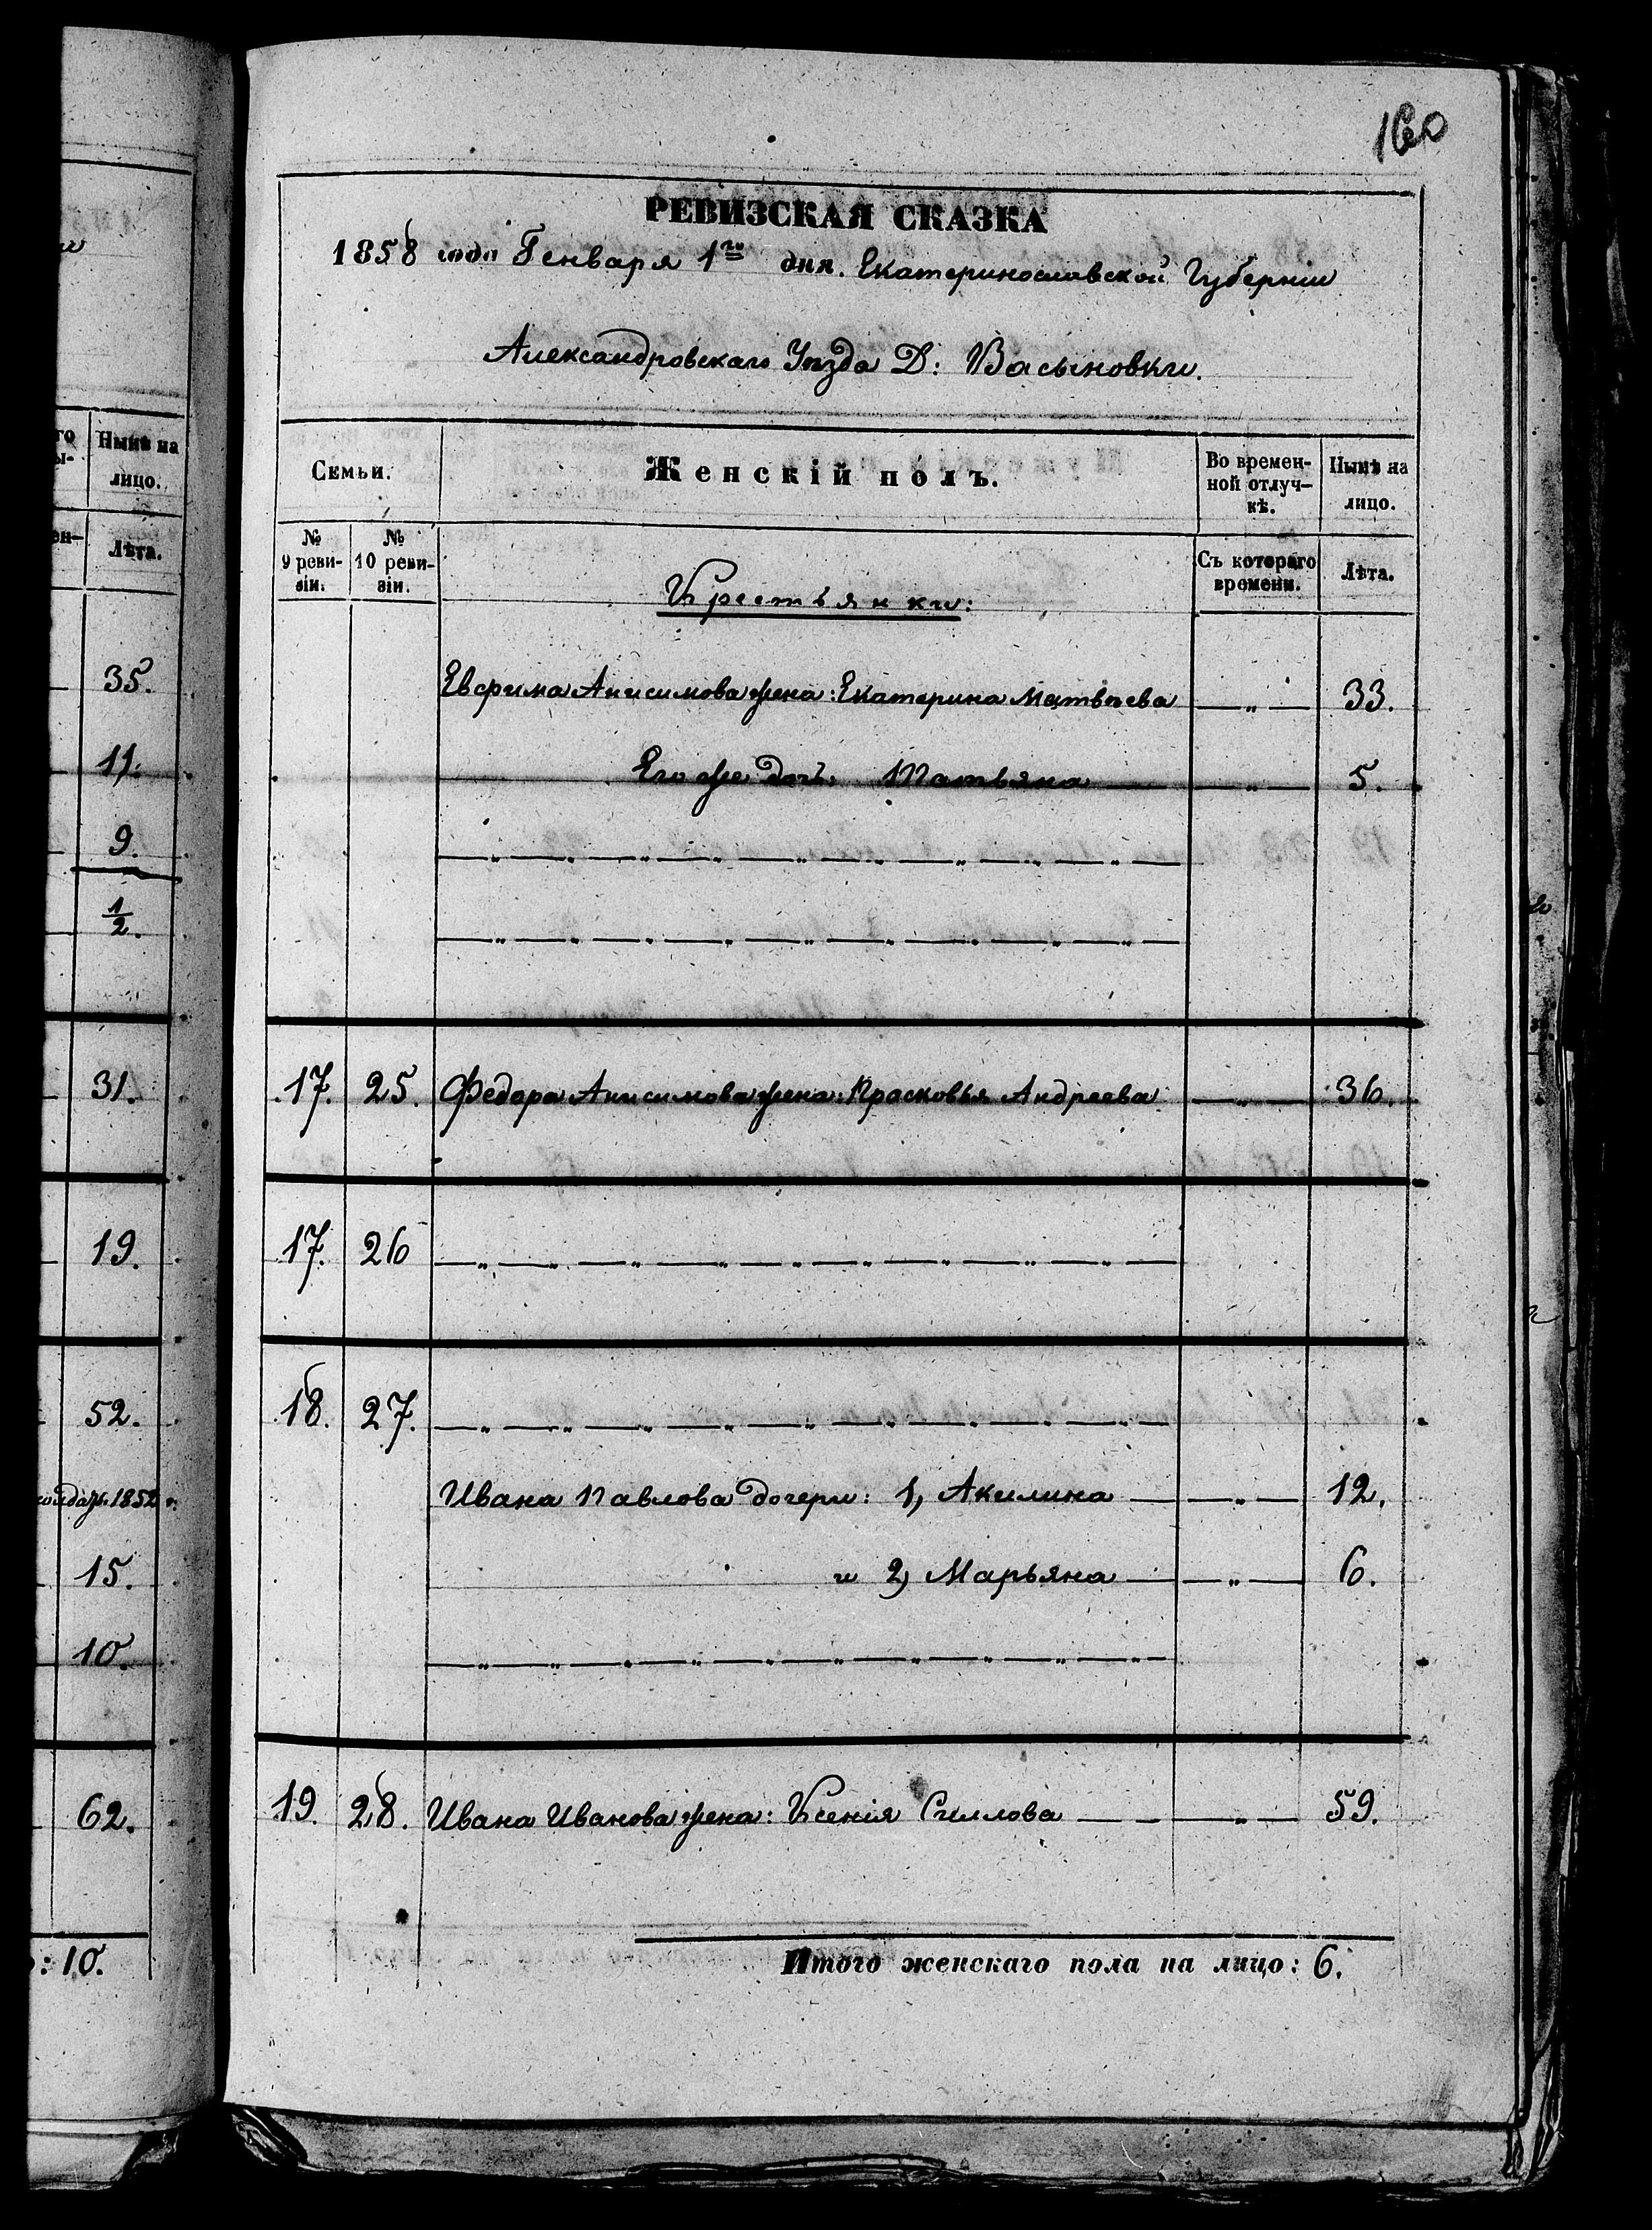 160
РЕВИЗСКАЯ СКАЗКА
1858 года Генваря 1го дня. Екатеринославской Губерніи
Александровскаго Уѣзда Д: Васыновки.
Ныне на
лицо.
Лѣта.
35.
11.
9.
1/2.
31.
19.
52.
1852
15.
10.
62.
: 10.
Семьи.
Женскій полъ.
Во времен-
ной отлуч-
кѣ.
Нынѣ на
лицо.
№
9 реви-
зіи.
№
10 реви-
зіи.
Съ котораго
времени.
Лѣта.
Крестьянки:
Евфима Анисимова жена: Екатерина Матвѣева — „ — 33.
Его же дочь: Татьяна — „ — 5.
17. 25. Федора Анисимова жена: Прасковья Андреева — „ — 36.
17. 26
18. 27.
Ивана Павлова дочери: 1, Акилина — „ — 12.
и 2, Марьяна — „ — 6.
19. 28. Ивана Иванова жена: Ксенія Силлова — „ — 59.
Итого женскаго пола на лицо: 6.